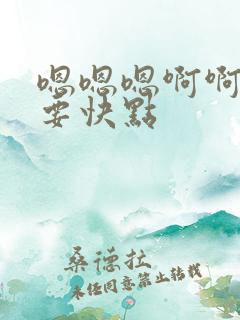 嗯嗯嗯啊啊
要快點
桑德拉
未经同意禁止转载